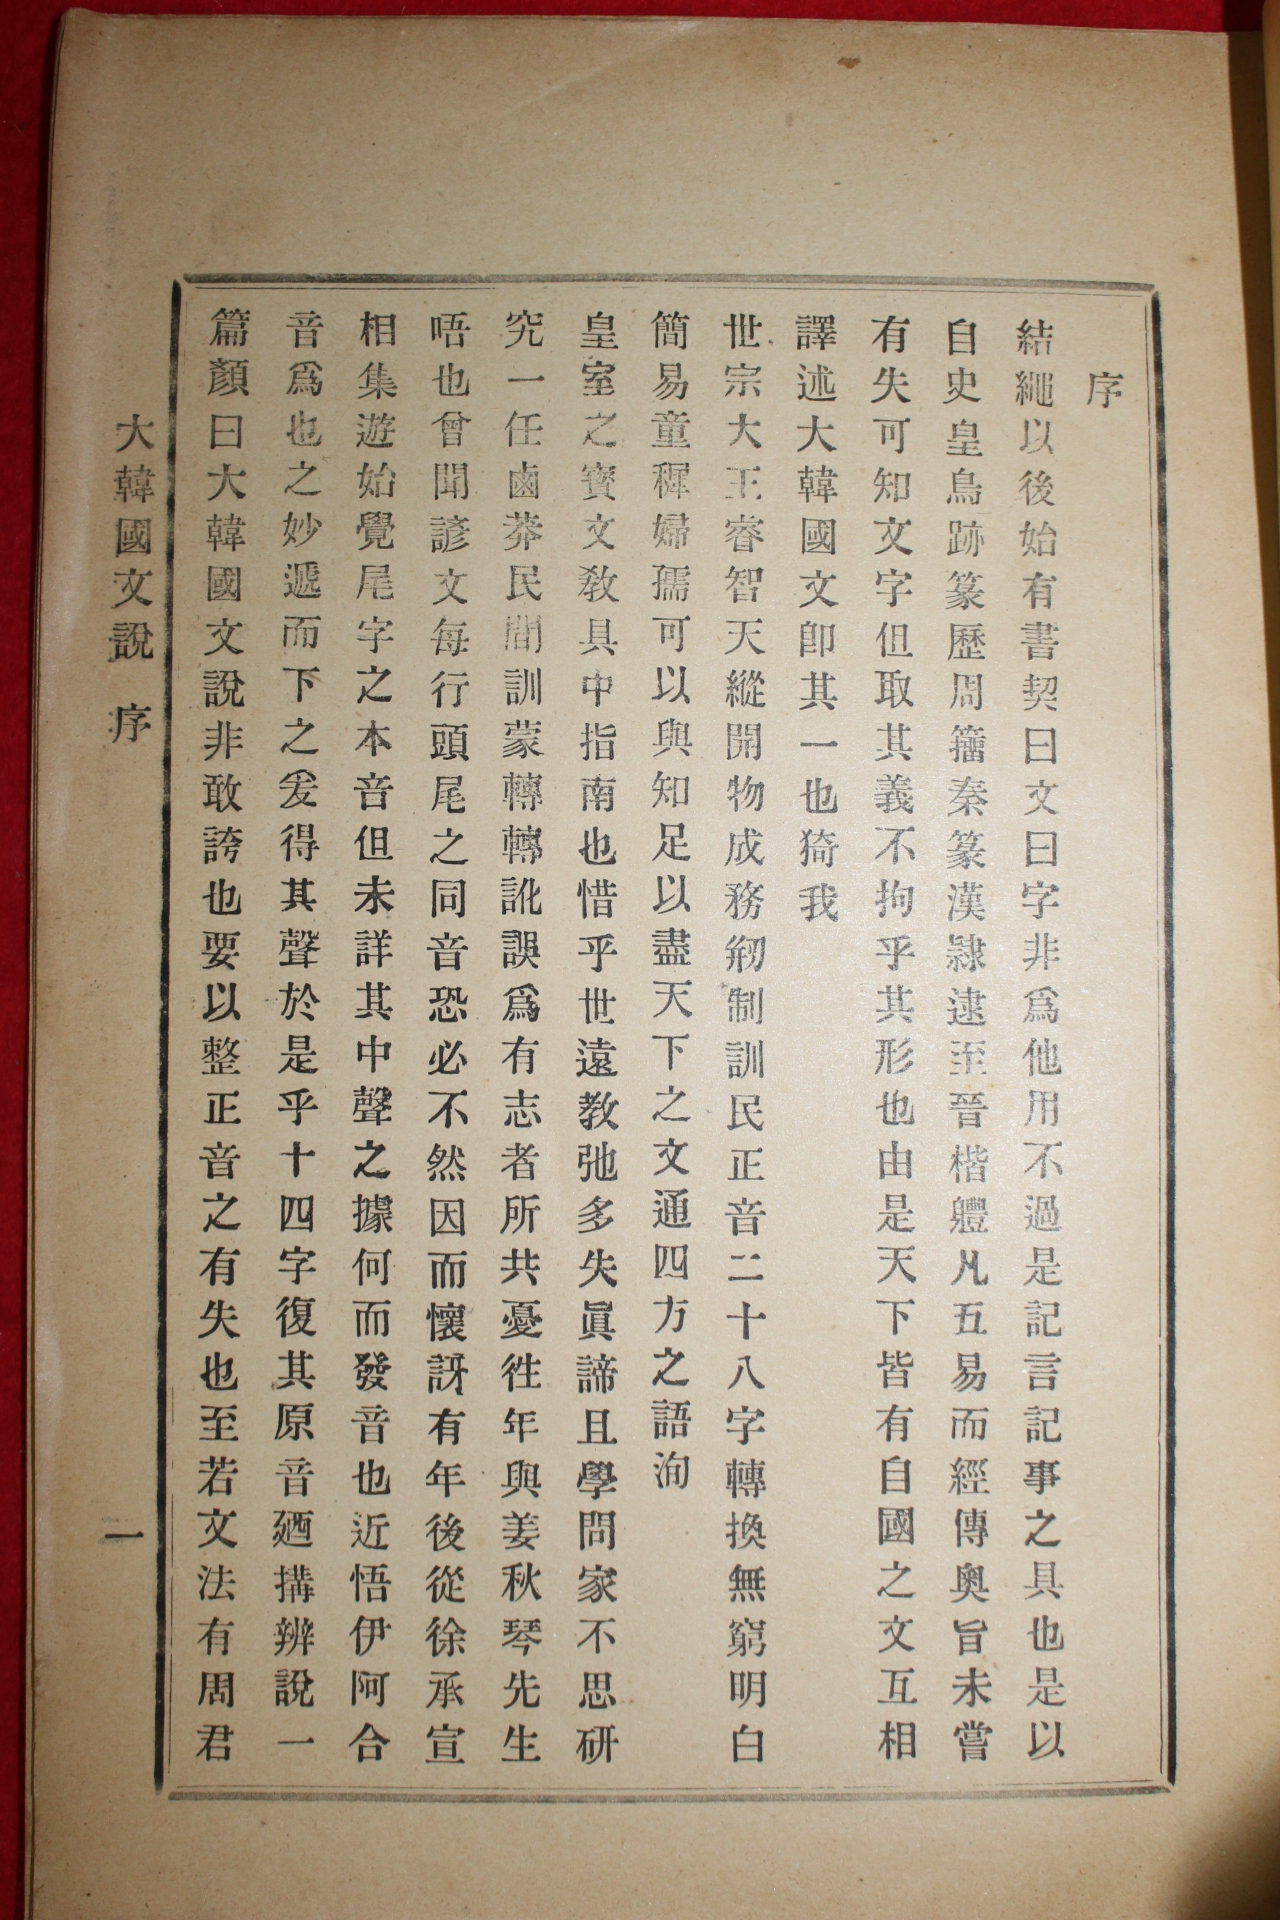 序
結繩以後始有書契曰文曰字非爲他用不過是記言記事之具也是以
自史皇鳥跡篆歷周籒秦篆漢隷逮至晉楷軆凡五易而經傳奧旨未嘗
有失可知文字但取其義不拘乎其形也由是天下皆有自國之文互相
譯述大韓國文卽其一也猗我
世宗大王睿智天縱開物成務刱制訓民正音二十八字轉換無窮明白
簡易童穉婦孺可以與知足以盡天下之文通四方之語洵
皇室之寶文敎具中指南也惜乎世遠教弛多失眞諦且學問家不思研
究一任鹵莽民間訓蒙轉轉訛誤爲有志者所共憂徃年與姜秋琴先生
唔也曾聞諺文每行頭尾之同音恐必不然因而懷訝有年後從徐承宣
相集遊始覺尾字之本音但未詳其中聲之據何而發音也近悟伊阿合
音爲也之妙遞而下之爰得其聲於是乎十四字復其原音廼搆辨說一
篇顏曰大韓國文說非敢誇也要以整正音之有失也至若文法有周君
大韓國文說 序
一